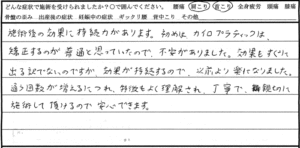 どんな症状で施術を受けられましたか？○で囲んでください。 腰痛 肩こり 首こり 全身疲労 頭痛 膝痛
骨盤の歪み 出産後の症状 妊娠中の症状 ギックリ腰 背中こり その他
施術後の効果に持続力があります。初めは カイロプラティックは、
矯正するのが普通と思っていたので、不安がありました。効果もすぐに
出る訳でないのですが、効果が持続するので、以前より楽になりました。
通う回数が増えるにつれ、状況をよく理解され、丁寧で、親切に
施術して頂けるので安心できます。